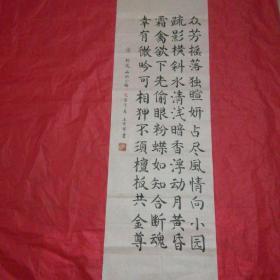 众芳摇落独暄妍占尽風情向小园
疏影横斜水清浅暗香浮动月黄昏
霜禽欲下先偷眼粉蝶如知合断魂
幸有微吟可相狎不須檀板共金尊